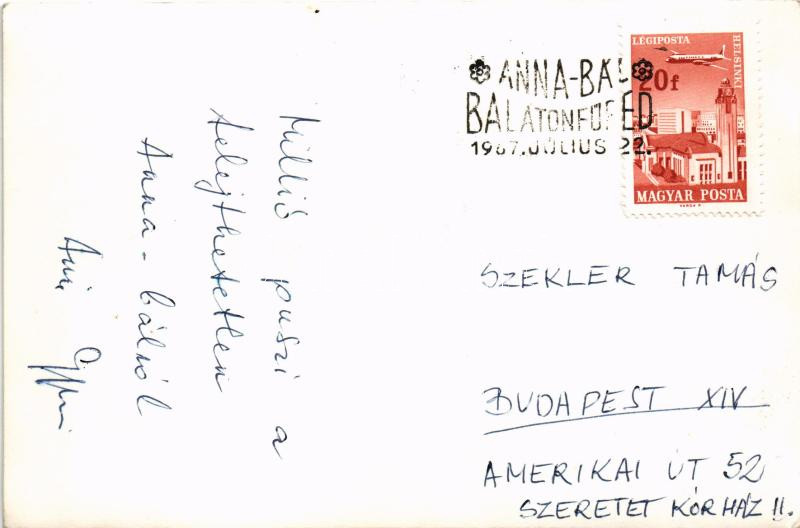 Millió puszi a
felejthetetlen
Anna-bálról
ANNA-BÁL
BALATONFÜRED
1967.JÚLIUS 22.
LÉGIPOSTA
HELSINKI
20f
MAGYAR POSTA
SZEKLER TAMÁS
BUDAPEST XIV
AMERIKAI ÚT 52
SZERETET KÓRHÁZ II.